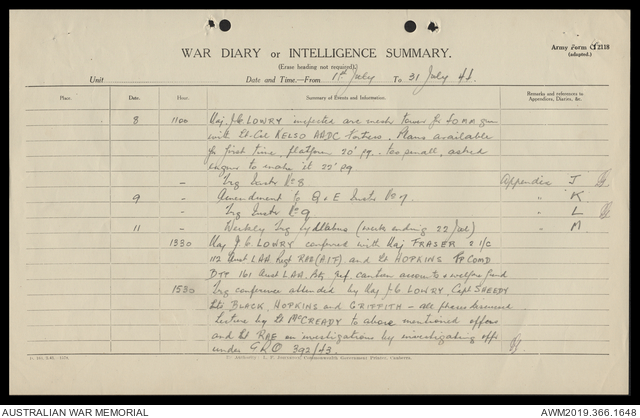 WAR DIARY or INTELLIGENCE SUMMARY.
(Erase heading not required).
Army Form C 2118
(adapted.)
Unit
Date and Time—From 1st July To 31 July 44.
Place. Date. Hour. Summary of Events and Information. Remarks and references to Appendices, Diaries, &c.
8 1100 Maj. J.G LOWRY inspected are mesh tower for 40MM gun
with Lt-Col KELSO AADC Fortress. Plans available
for first time, platform 20' sq. - too small, asked
engrs to make it 22' sq
- Trg Instr No 8 Appendix J
9 - Amendment to Q & E Instr No 7. " K
- Trg Instr No 9 " L
11 - Weekly Trg Syllabus (week ending 22 Jul) " M
1330 Maj J.G LOWRY conferred with Maj FRASER 2 i/c
112 Aust LAA Regt RAA (AIF) and Lt HOPKINS Tp COMD
Bty 161 Aust LAA Bty ref. canteen assets & welfare fund
1530 Trg conference attended by Maj J.G LOWRY Capt SHEEDY
Lts BLACK, HOPKINS and GRIFFITH — all phases discussed
Lecture by Lt McCREADY to above mentioned offrs
and Lt RAE on investigations by investigating offr
under GRO 392/43.
AUSTRALIAN WAR MEMORIAL
AWM2019.366.1648